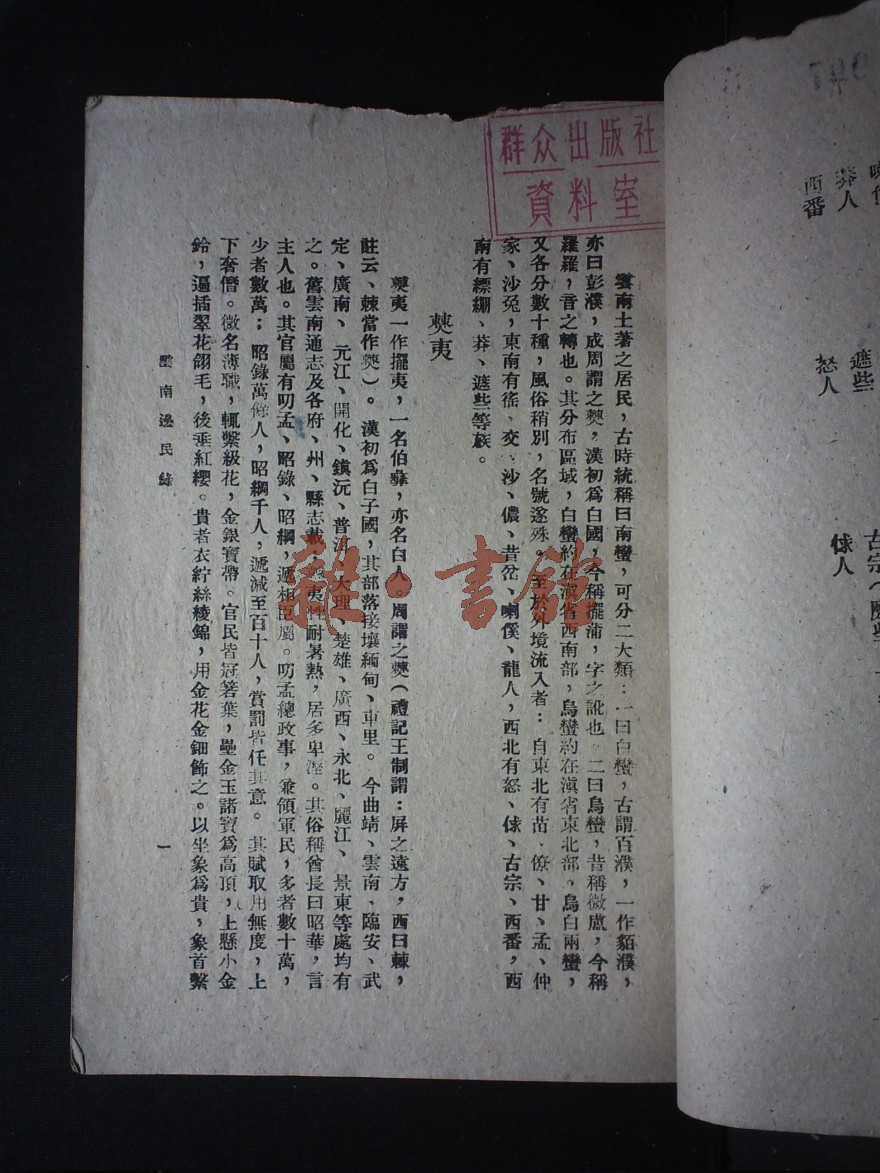 群众出版社
資料室
雲南土著之居民，古時統稱曰南蠻，可分二大類：一曰白蠻，古謂百濮，一作貊濮，
亦曰彭濮，成周謂之僰，漢初爲白國，今稱擺蒲，字之訛也。二曰烏蠻，昔稱微盧，今稱
羅羅，音之轉也。其分布區域，白蠻約在滇省西南部，烏蠻約在滇省東北部。烏白兩蠻，
又各分數十種，風俗稍別，名號遂殊。至於外境流入者：自東北有苗、僚、甘、孟、仲
家、沙兔，東南有徭、交、沙、儂、昔岔、喇傒、龍人，西北有怒、俅、古宗、西番，西
南有縹綳、莽、遮些等族。
僰夷
僰夷一作擺夷，一名伯彝，亦名白人。周謂之僰（禮記王制謂：屏之遠方，西曰棘，
註云、棘當作僰）。漢初爲白子國，其部落接壤緬甸、車里。今曲靖、雲南、臨安、武
定、廣南、元江、開化、鎮沅、普洱、大理、楚雄、廣西、永北、麗江、景東等處均有
之。舊雲南通志及各府、州、縣志載，僰夷性耐暑熱，居多卑溼。其俗稱酋長曰昭華，言
主人也。其官屬有叨孟、昭錄、昭綱，遞相臣屬。叨孟總政事，兼領軍民，多者數十萬，
少者數萬；昭錄萬餘人，昭綱千人，遞減至百十人，賞罰皆任其意。其賦取用無度，上
下奢僭。微名薄職，輒繫級花，金銀寶帶。官民皆冠箬葉，壘金玉諸寶爲高頂，上懸小金
鈴，遍插翠花翎毛，後垂紅纓。貴者衣紵絲綾錦，用金花金鈿飾之。以坐象爲貴，象首繫
雲南邊民錄
一
莽人
西番
遮些
怒人
古宗
俅人
雜·書館